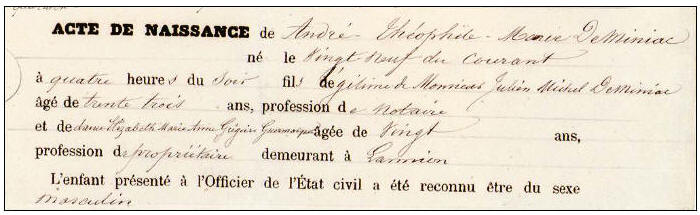 ACTE DE NAISSANCE de André Théophile Marie DeMiniac
né le Vingt Neuf du Courant
à quatre heures du Soir fils légitime de Monsieur Julien Michel DeMiniac
âgé de trente trois ans, profession de Notaire
et de dame Elizabeth Marie Anne âgée de Vingt ans,
profession de propriétaire demeurant à Lannion
L'enfant présenté à l'Officier de l'État civil a été reconnu être du sexe
masculin